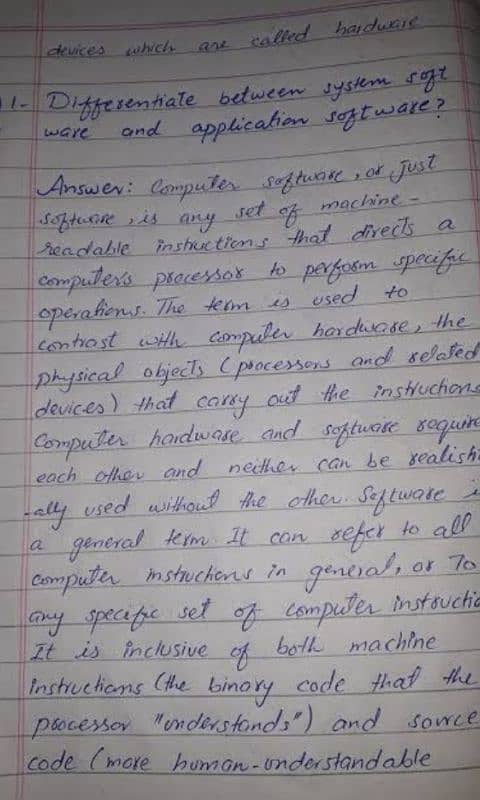 devices which are called hardware
1- Differentiate between system soft
ware and application software?
Answer: Computer software, or just
software, is any set of machine-
readable instructions that directs a
computer's processor to perform specific
operations. The term is used to
contrast with computer hardware, the
physical objects (processors and related
devices) that carry out the instructions
Computer hardware and software require
each other and neither can be realisti
-ally used without the other. Software i
a general term. It can refer to all
computer instructions in general, or To
any specific set of computer instructio
It is inclusive of both machine
instructions (the binary code that the
processor "understands") and source
code (more human-understandable